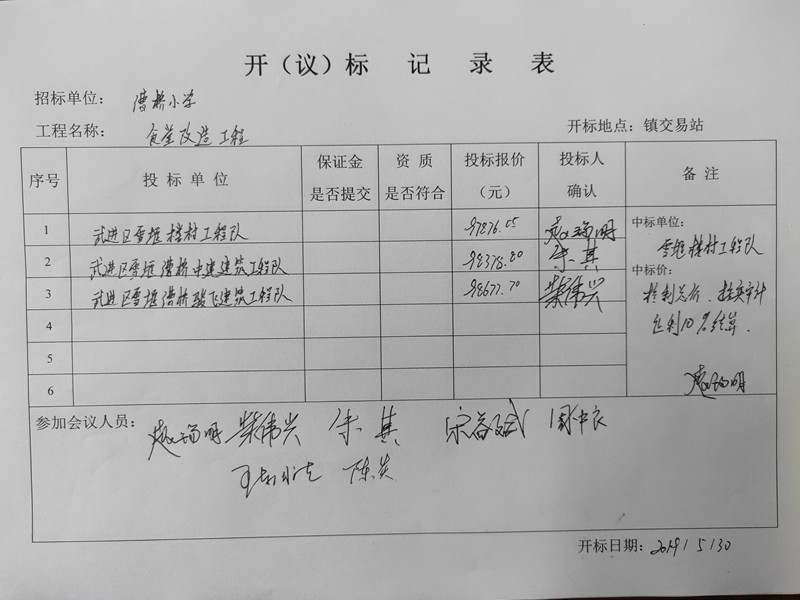 开（议）标 记 录 表
招标单位： 漕桥小学
工程名称： 食堂改造工程
开标地点：镇交易站
序号 投标单位 保证金是否提交 资质是否符合 投标报价（元） 投标人确认 备注
1 武进区雪堰楼村工程队 97876.05
2 武进区雪堰漕桥中建建筑工程队 98378.80 朱其
3 武进区雪堰漕桥骏飞建筑工程队 98677.70 柴伟兴
4
5
6
中标单位：
雪堰楼村工程队
中标价：
控制总价、按实审计
让利10%结算.
参加会议人员： 柴伟兴 朱其
陈炎
开标日期：2019/5/30